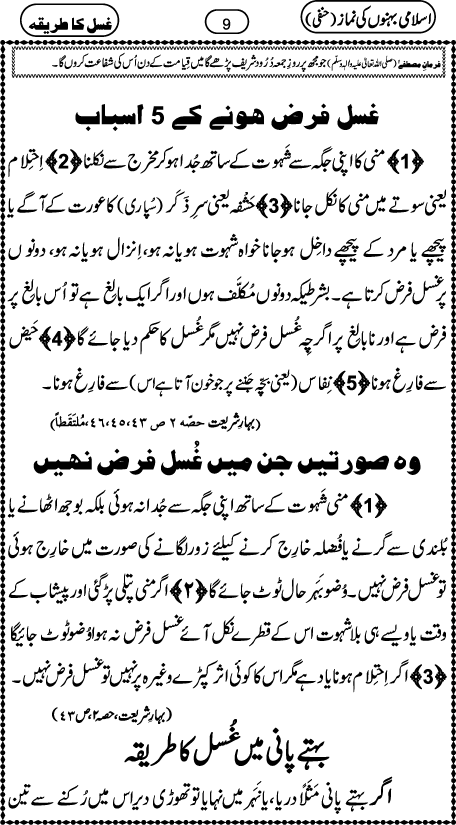 اسلامی بہنوں کی نماز (حنفی) 9 غسل کا طریقہ
فرمانِ مصطفےٰ (صلی اللہ تعالیٰ علیہ والہٖ وسلم) جو مجھ پر روزِ جمعہ دُرُود شریف پڑھے گا میں قیامت کے دن اُس کی شفاعت کروں گا۔
غسل فرض ہونے کے 5 اسباب
﴿1﴾ منی کا اپنی جگہ سے شَہوت کے ساتھ جُدا ہو کر مخرج سے نکلنا ﴿2﴾ اِحتِلام
یعنی سوتے میں منی کا نکل جانا ﴿3﴾ حَشْفہ یعنی سرِ ذَکَر (سُپاری) کا عورت کے آگے یا
پیچھے یا مرد کے پیچھے داخِل ہو جانا خواہ شہوت ہو یا نہ ہو، اِنزال ہو یا نہ ہو، دونوں
پر غسل فرض کرتا ہے۔ بشرطیکہ دونوں مُکلَّف ہوں اور اگر ایک بالِغ ہے تو اُس بالِغ پر
فرض ہے اور نابالِغ پر اگرچِہ غُسل فرض نہیں مگر غُسل کا حکم دیا جائے گا ﴿4﴾ حَیض
سے فارِغ ہونا ﴿5﴾ نِفاس (یعنی بچّہ جَننے پر جو خون آتا ہے اس) سے فارِغ ہونا۔
(بہارِ شریعت حصّہ ۲ ص ۴۳، ۴۵، ۴۶، مُلتَقطاً)
وہ صورتیں جن میں غُسل فرض نہیں
﴿1﴾ منی شَہوت کے ساتھ اپنی جگہ سے جُدا نہ ہوئی بلکہ بوجھ اٹھانے یا
بُلندی سے گرنے یا فُضلہ خارِج کرنے کیلئے زور لگانے کی صورت میں خارج ہوئی
تو غسل فرض نہیں۔ وُضو بَہر حال ٹوٹ جائے گا ﴿۲﴾ اگر منی پتلی پڑ گئی اور پیشاب کے
وقت یا ویسے ہی بلا شہوت اس کے قطرے نکل آئے غسل فرض نہ ہوا وُضو ٹوٹ جائیگا
﴿3﴾ اگر اِحتِلام ہونا یاد ہے مگر اس کا کوئی اثر کپڑے وغیرہ پر نہیں تو غسل فرض نہیں۔
(بہارِ شریعت، حصہ ۲، ص ۴۳)
بہتے پانی میں غُسل کا طریقہ
اگر بہتے پانی مَثَلاً دریا، یا نَہر میں نہایا تو تھوڑی دیر اس میں رُکنے سے تین